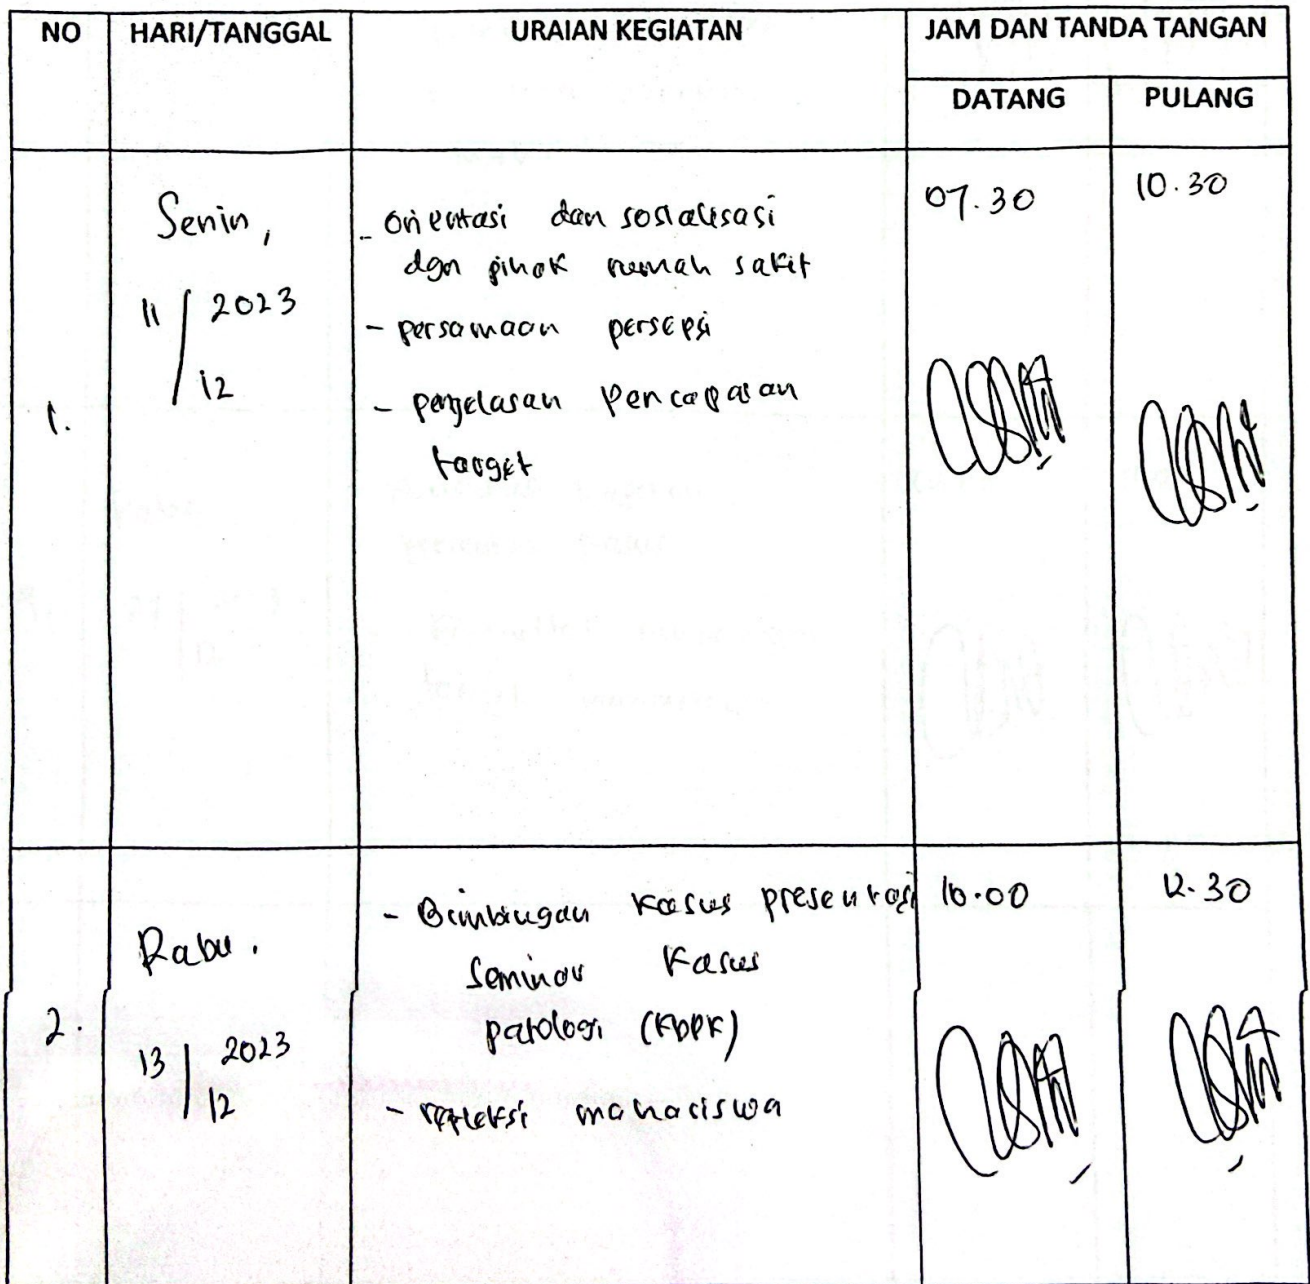 NO HARI/TANGGAL URAIAN KEGIATAN JAM DAN TANDA TANGAN
DATANG PULANG
1.
Senin,
11/12 2023
- orientasi dan sosialisasi
dgn pihak rumah sakit
- persamaan persepsi
- penjelasan pencapaian
target
07.30 10.30
2.
Rabu.
13/12 2023
- Bimbingan kasus presentasi
Seminar kasus
patologi (KDPK)
- refleksi mahasiswa
10.00 12.30